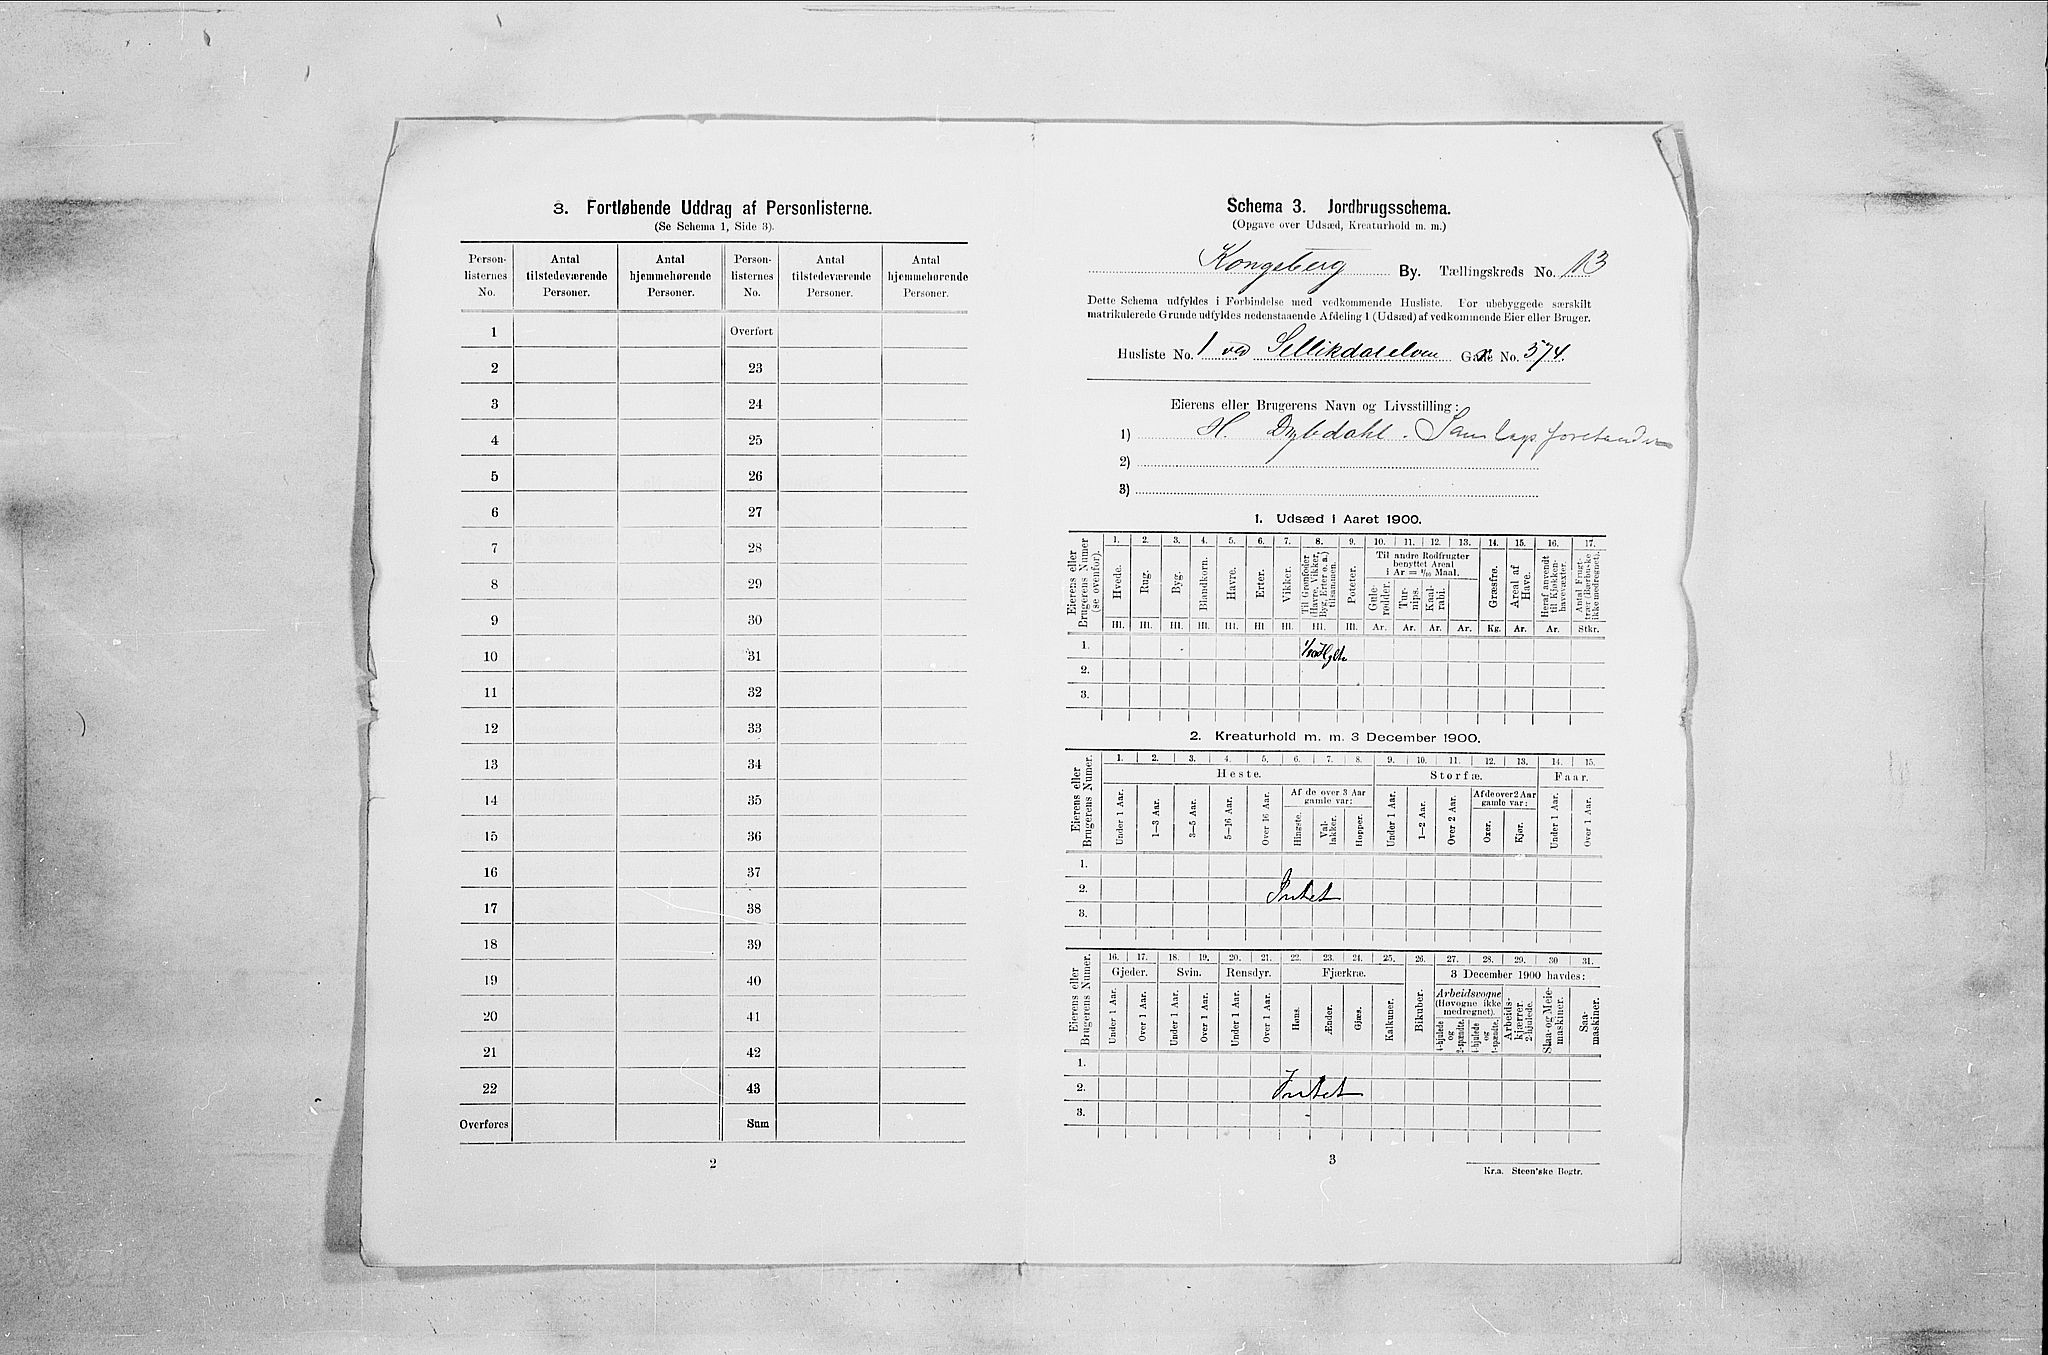 3. Fortløbende Uddrag af Personlisterne.
(Se Schema 1, Side 3).
Person-listernes No. Antal tilstedeværende Personer. Antal hjemmehørende Personer. Person-listernes No. Antal tilstedeværende Personer. Antal hjemmehørende Personer.
1 Overført
2 23
3 24
4 25
5 26
6 27
7 28
8 29
9 30
10 31
11 32
12 33
13 34
14 35
15 36
16 37
17 38
18 39
19 40
20 41
21 42
22 43
Overføres Sum
2
Schema 3. Jordbrugsschema.
(Opgave over Udsæd, Kreaturhold m. m.)
Kongsberg By. Tællingskreds No. 13
Dette Schema udfyldes i Forbindelse med vedkommende Husliste. For ubebyggede særskilt
matrikulerede Grunde udfyldes nedenstaaende Afdeling 1 (Udsæd) af vedkommende Eier eller Bruger.
Husliste No. 1 ved Sellikdalselven Gade No. 574.
Eierens eller Brugerens Navn og Livsstilling:
1) H. Dybdahl. Samlagsforstander
2)
3)
1. Udsæd i Aaret 1900.
Eierens eller Brugerens Numer (se ovenfor).
1. 2. 3. 4. 5. 6. 7. 8. 9. 10. 11. 12. 13. 14. 15. 16. 17.
Hvede. Rug. Byg. Blandkorn. Havre. Erter. Vikker. Til Grønfoder (Havre, Vikker, Byg, Erter o. a.) tilsammen. Poteter. Til andre Rodfrugter benyttet Areal i Ar = 1/10 Maal. Gulerødder. Turnips. Kaalrabi. Græsfrø. Areal af Have. Heraf anvendt til Kjøkkenhavevæxter. Antal Frugttrær (Bærbuske ikke medregnet).
Hl. Hl. Hl. Hl. Hl. Hl Hl. Hl. Hl. Ar. Ar. Ar. Ar. Kg. Ar. Ar. Stkr.
1.
2.
3.
2. Kreaturhold m. m. 3 December 1900.
Eierens eller Brugerens Numer.
1. 2. 3. 4. 5. 6. 7. 8. 9. 10. 11. 12. 13. 14. 15.
Heste. Storfæ. Faar.
Af de over 3 Aar gamle var: Af de over 2 Aar gamle var:
Under 1 Aar. 1—3 Aar. 3—5 Aar. 5—16 Aar. Over 16 Aar. Hingste. Vallakker. Hopper. Under 1 Aar. 1—2 Aar. Over 2 Aar. Oxer. Kjør. Under 1 Aar. Over 1 Aar.
1.
2. Intet
3.
Eierens eller Brugerens Numer.
16. 17. 18. 19. 20. 21. 22. 23. 24. 25. 26. 27. 28. 29. 30 31.
Gjeder. Svin. Rensdyr. Fjærkræ. 3 December 1900 havdes:
Arbeidsvogne (Høvogne ikke medregnet).
Under 1 Aar. Over 1 Aar. Under 1 Aar. Over 1 Aar. Under 1 Aar. Over 1 Aar. Høns. Ænder. Gjæs. Kalkuner. Bikuber. 4-hjulede og 2-spændte. 4-hjulede og 1-spændte. Arbeidskjærrer 2-hjulede. Slaa- og Meiemaskiner. Saamaskiner.
1.
2. Intet
3.
3
Kr.a. Steen'ske Bogtr.